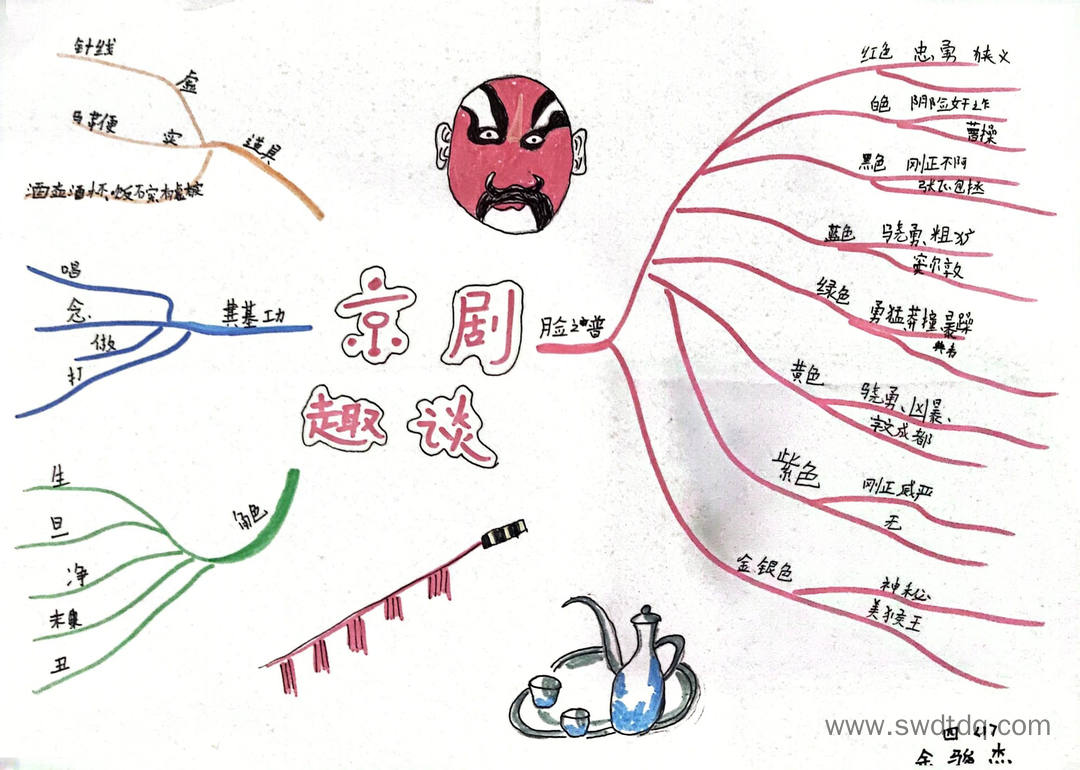 京剧
趣谈
道具
虚
针线
实
马车便
其基功
唱
念、
做
打
角色
生
旦
净
末
丑
脸谱
红色 忠勇 侠义
白色 阴险奸诈
曹操
黑色 刚正不阿
张飞包拯
蓝色 骁勇、粗犷
窦尔敦
绿色
勇猛莽撞、暴躁
黄色
骁勇、凶暴、
宇文成都
紫色
刚正威严
无
金银色
神秘
美猴王
www.swdtdq.com
杰